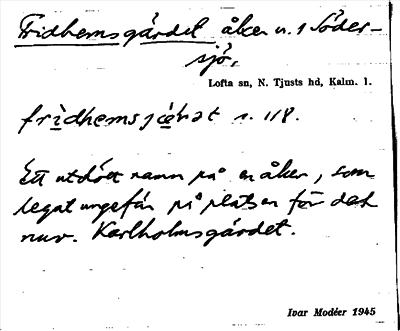 Fridhemsgärdet åker n. 1 Söder-
sjö,
Lofta sn, N. Tjusts hd, Kalm. l.
s. 118.
Ett utdött namn på en åker, som
legat ungefär på platsen för det
nuv. Karlholmsgärdet.
Ivar Modéer 1945